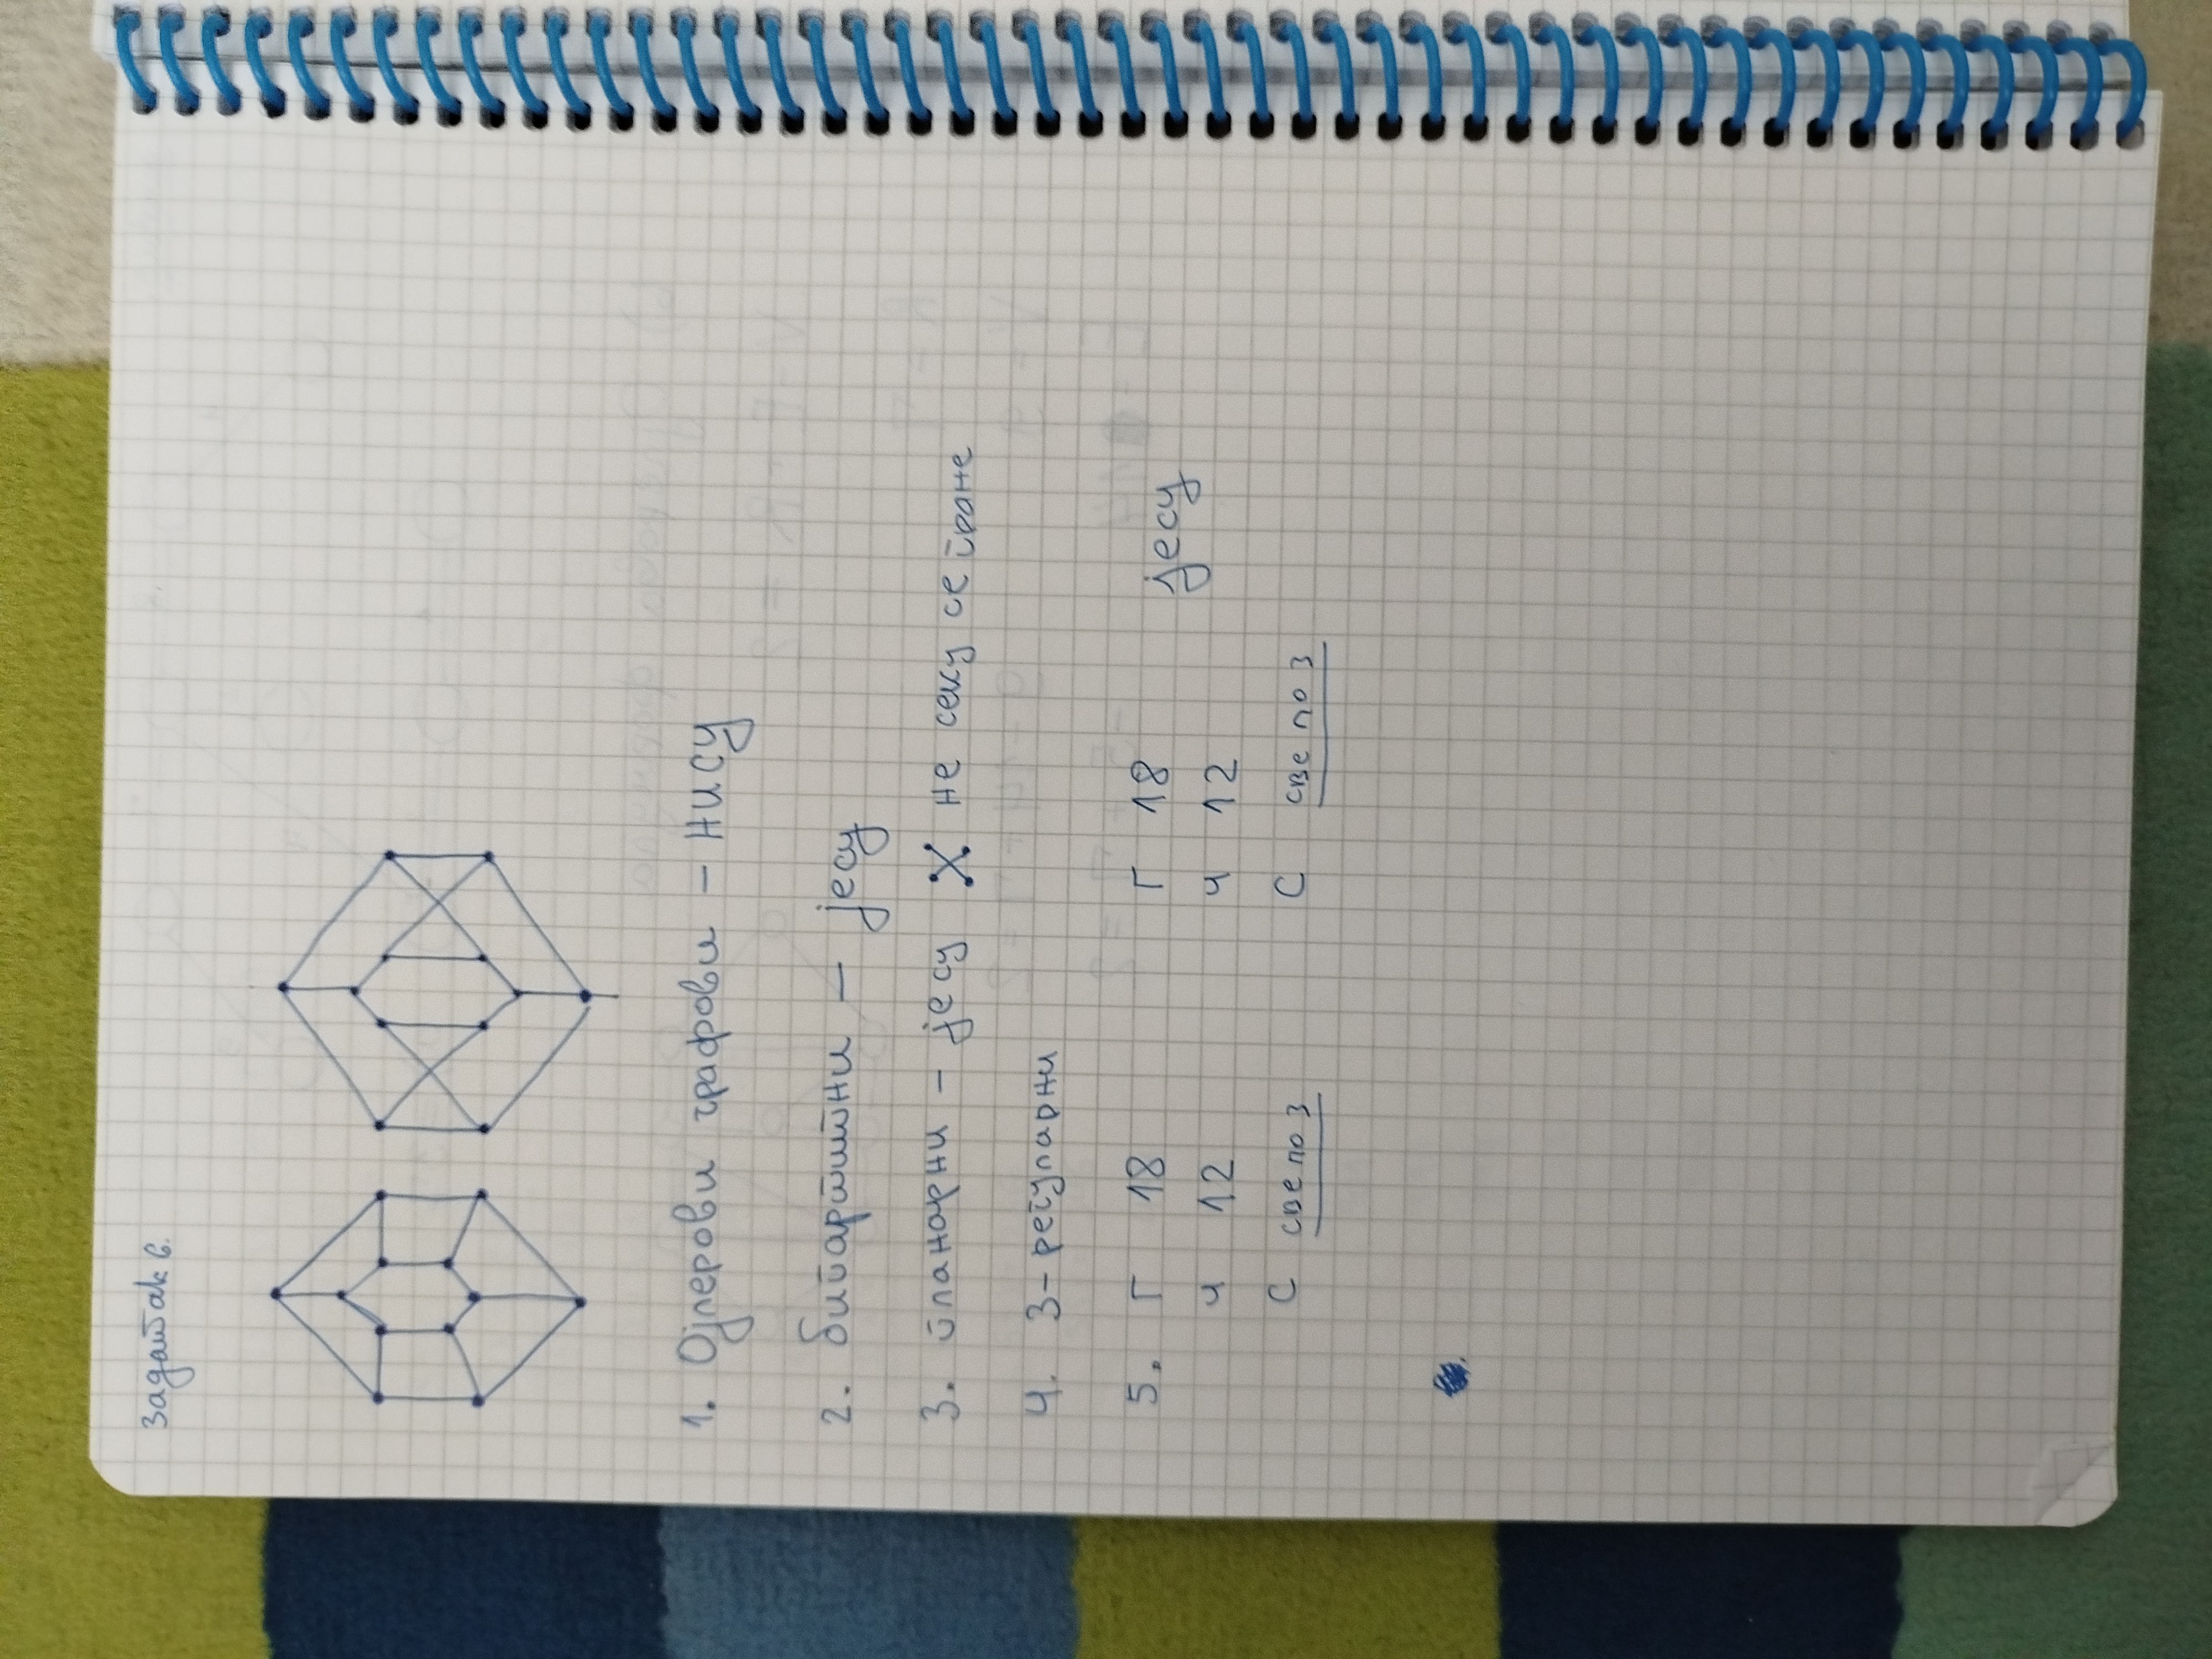 Задатак 6.
1. Ојлерови графови – НИСУ
2. бипартитни – јесу
3. планарни – јесу не секу се гране
4. 3-регуларни
5. Г 18 Г 18 јесу
Ч 12 Ч 12
С све по 3 С све по 3